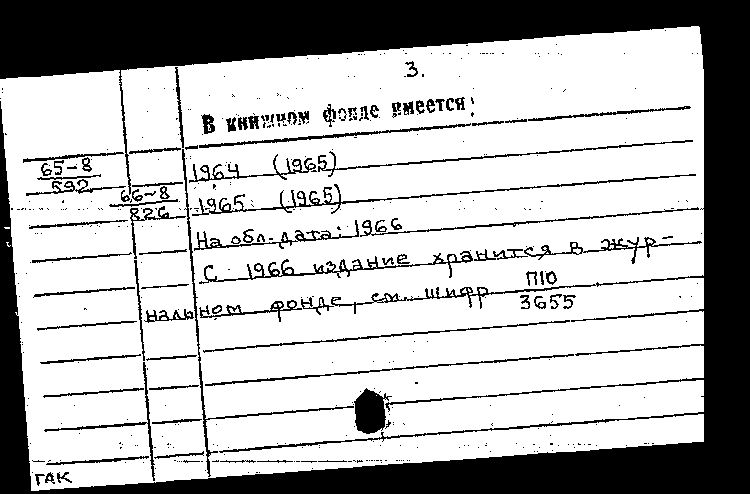 3.
В книжном фонде имеется:
65-8
592 1964 (1965)
66-8
826 1965 (1965)
На обл. дата: 1966
С 1966 издание хранится в жур-
нальном фонде, см. шифр П10
3655
ГАК